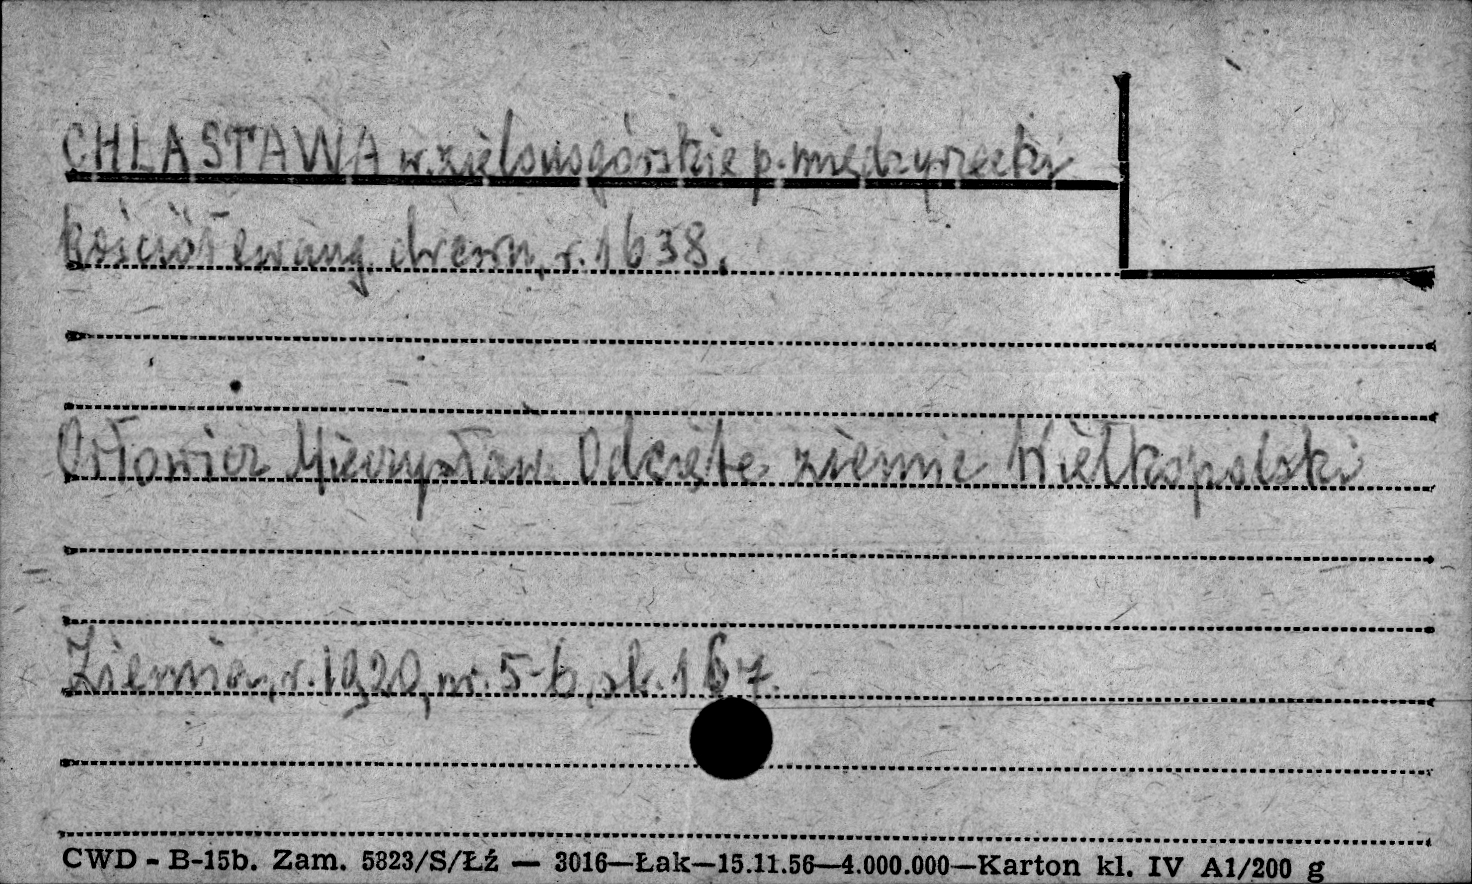 CHLASTAWA w. zielonogórskie p. międzyrzecki
kościół ewang. drewn., r. 1638.
Orłowicz Mieczysław. Odcięte ziemie Wielkopolski
Ziemia, r. 1920, nr. 5-6, sk. 167.
CWD - B-15b. Zam. 5823/S/Łź — 3016—Łak—15.11.56—4.000.000—Karton kl. IV A1/200 g